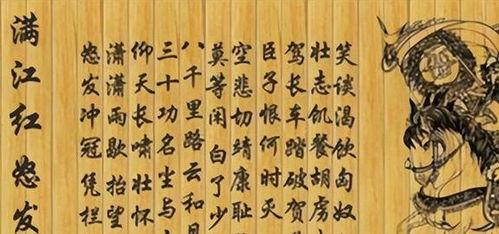 满江红 怒发
怒发冲冠凭栏
潇潇雨歇抬望
仰天长啸壮怀
三十功名尘与
八千里路云和月
莫等闲白了少
空悲切靖康耻
臣子恨何时灭
驾长车踏破贺
壮志饥餐胡虏
笑谈渴饮匈奴